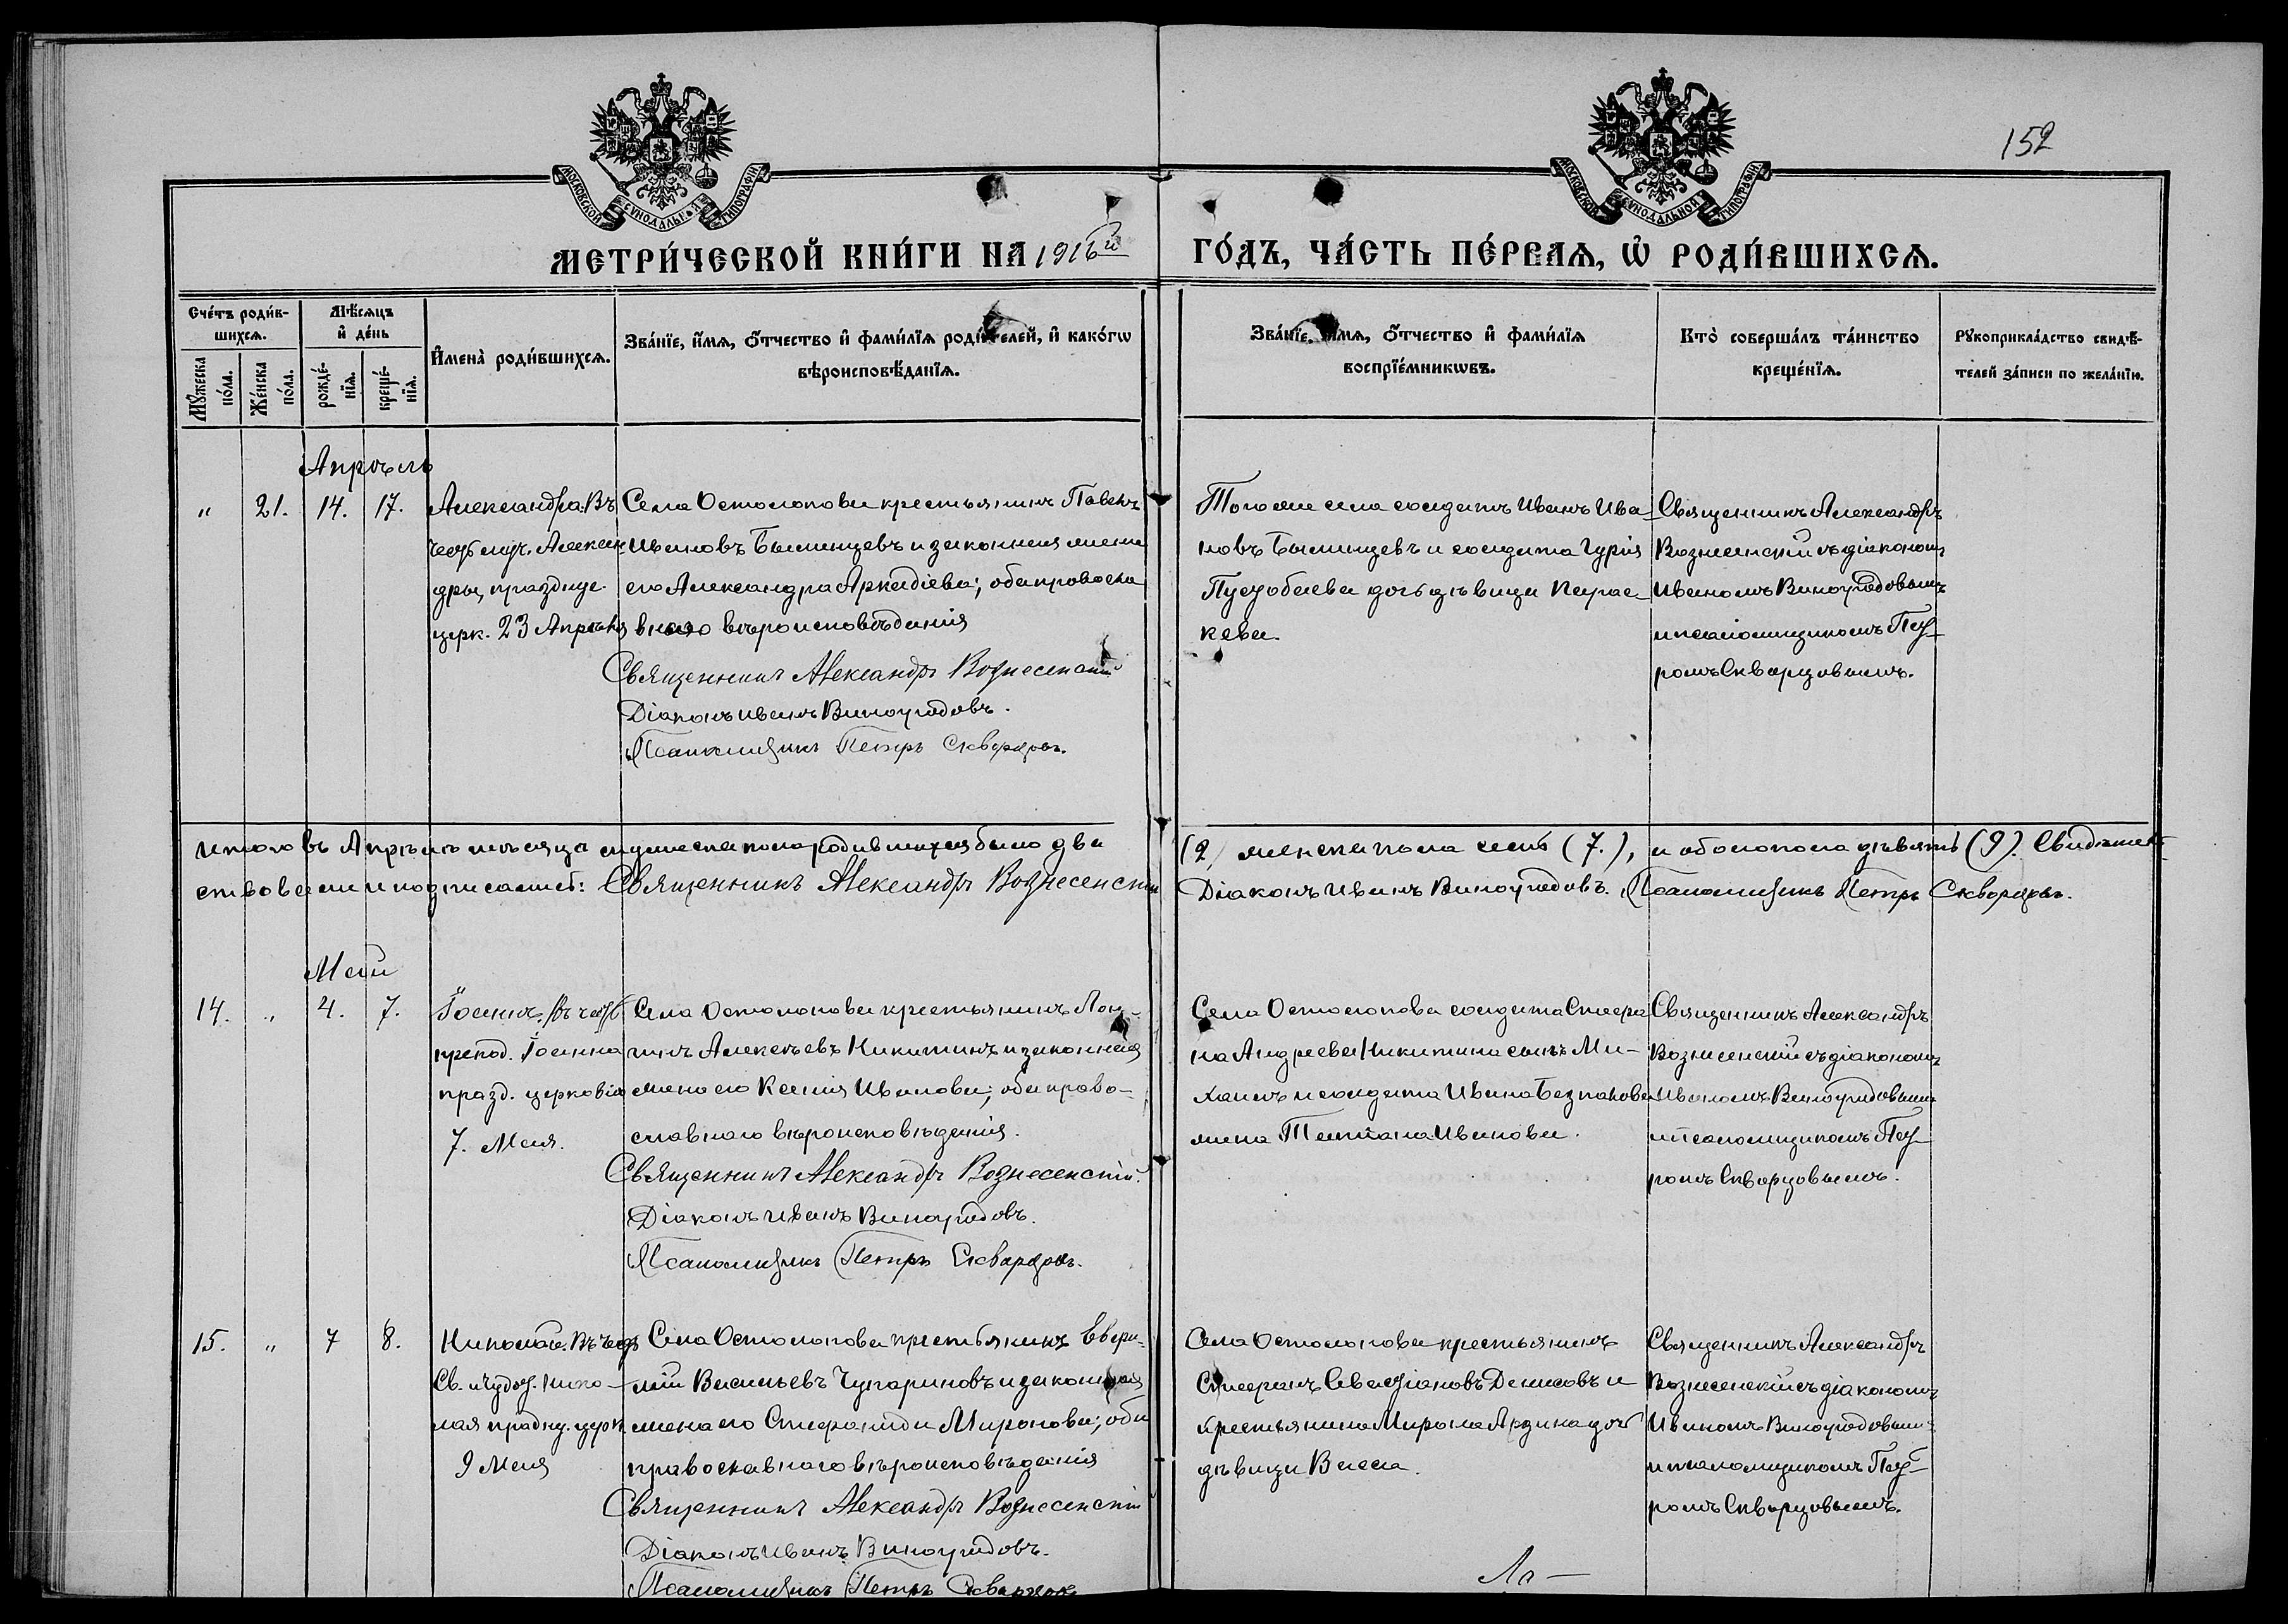 152
МОСКОВСКОЙ СѴНОДАЛЬНОЙ ТИПОГРАФІИ
МОСКОВСКОЙ СѴНОДАЛЬНОЙ ТИПОГРАФІИ
МЕТРИ́ЧЕСКОЙ КНИ́ГИ НА 1916й ГО́ДЪ, ЧА́СТЬ ПЕ́РВАѦ, Ѡ҆ РОДИ́ВШИХСѦ.
Сче́тъ роди́в-
шихсѧ.
Мꙋ́жеска
по́ла.
Же́нска
по́ла.
Мѣ́сѧцъ
и҆ де́нь
рожде́-
нїѧ.
креще́-
нїѧ.
И҆мена̀ роди́вшихсѧ.
Зва́нїе, и҆́мѧ, ѻ҆́тчество и҆ фами́лїѧ роди́телей, и҆ како́гѡ
вѣроисповѣ́данїѧ.
Зва́нїе, и҆́мѧ, ѻ҆́тчество и҆ фами́лїѧ
воспрїе́мникѡвъ.
Кто̀ соверша́лъ та́инство
креще́нїѧ.
Рꙋкоприкла́дство свидѣ́-
телей за́писи по жела́нїю.
Апрѣль
" 21. 14. 17.
Александра. Въ
честь муч. Алексан-
дры, празднуе
церк. 23 Апрѣля
Села Остолопова крестьянинъ Павелъ
Ивановъ Былинцевъ и законная жена
его Александра Аркадіева; оба правосла
внаго вѣроисповѣданія
Священникъ Александръ Вознесенскій
Діаконъ Иванъ Виноградовъ.
Псаломщикъ Петръ Скворцовъ.
Того же села солдатъ Иванъ Ива-
новъ Былинцевъ и солдата Гурія
дочь дѣвица Парас-
кева.
Священникъ Александръ
Вознесенскій съ діакономъ
Иваномъ Виноградовымъ
и псаломщикомъ Пет-
ромъ Скворцовымъ.
Итого въ Апрѣлѣ мѣсяцѣ мужеска пола родившихся было два
(2) женска пола семь (7.), и обоего пола девять (9). Свидѣтель-
ствовали и подписались: Священникъ Александръ Вознесенскій
Діаконъ Иванъ Виноградовъ. Псаломщикъ Петръ Скворцовъ.
Май
14. " 4. 7.
Іоаннъ. Въ честь
препод. Іоанна
празд. церковію
7. Мая.
Села Остолопова крестьянинъ Лон-
гинъ Алексѣевъ Никитинъ и законная
жена его Ксенія Иванова; оба право-
славнаго вѣроисповѣданія.
Священникъ Александръ Вознесенскій.
Діаконъ Иванъ Виноградовъ.
Псаломщикъ Петръ Скворцовъ.
Села Остолопова солдата Стефа
на Андреева Никитина сынъ Ми-
хаилъ и солдата Ивана Безпалова
жена Татіана Иванова.
Священникъ Александръ
Вознесенскій съ діакономъ
Иваномъ Виноградовымъ
и псаломщикомъ Пет-
ромъ Скворцовымъ.
15. " 7 8.
Николай. Въ честь
Св. и Чудот. Нико-
лая празд. церк.
9 Мая
Села Остолопова крестьянинъ Евфи-
мій Васильевъ Чупариновъ и законная
жена его Стефанида Миронова; оба
православнаго вѣроисповѣданія
Священникъ Александръ Вознесенскій
Діаконъ Иванъ Виноградовъ.
Псаломщикъ Петръ Скворцовъ
Села Остолопова крестьянинъ
Стефанъ Севастіановъ Денисовъ и
крестьянина Мирона дочь
дѣвица Васса.
Священникъ Александръ
Вознесенскій съ діакономъ
Иваномъ Виноградовымъ
и псаломщикомъ Пет-
ромъ Скворцовымъ.